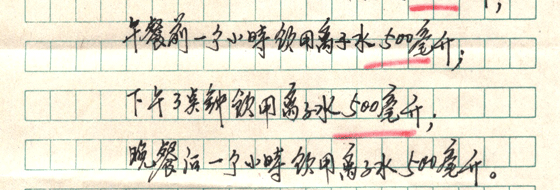 午餐前一个小时饮用离子水500毫升；
下午3点钟饮用离子水500毫升；
晚餐后一个小时饮用离子水500毫升。